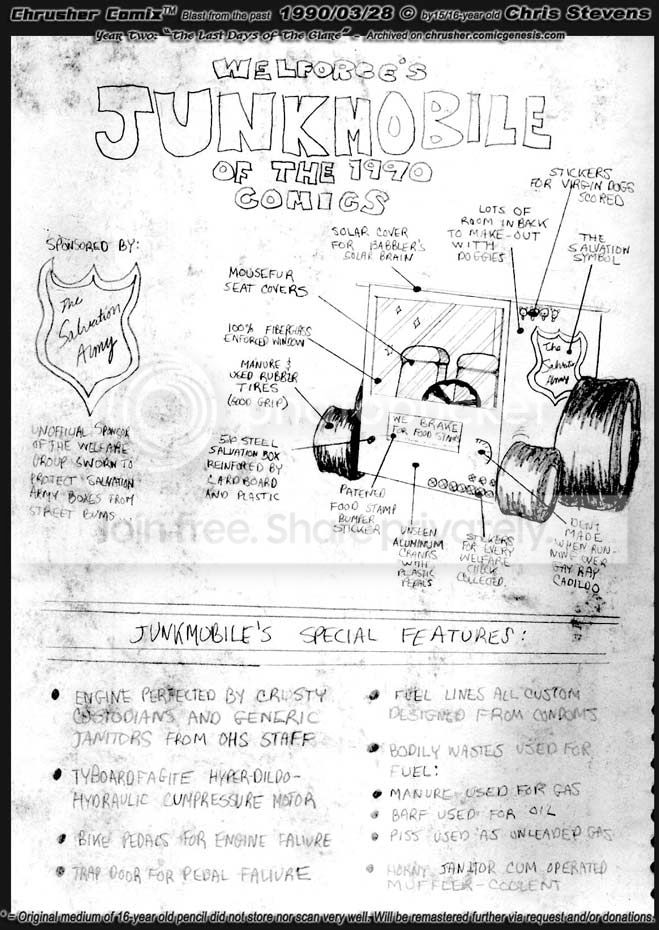 Chrusher Comix™ Blast from the past 1990/03/28 © by 15/16-year old Chris Stevens
Year Two: "The Last Days of The Glare" - Archived on chrusher.comicgenesis.com
WELFORCE'S
JUNKMOBILE
OF THE 1990
COMICS
SPONSORED BY:
The
Salvation
Army
UNOFFICIAL SPONSOR
OF THE WELFARE
GROUP SWORN TO
PROTECT SALVATION
ARMY BOXES FROM
STREET BUMS
SOLAR COVER
FOR BABBLER'S
SOLAR BRAIN
LOTS OF
ROOM IN BACK
TO MAKE-OUT
WITH
DOGGIES
STICKERS
FOR VIRGIN DOGS
SCORED
THE
SALVATION
SYMBOL
MOUSEFUR
SEAT COVERS
100% FIBERGLASS
ENFORCED WINDOW
MANURE &
USED RUBBER
TIRES
(GOOD GRIP)
STEEL
SALVATION BOX
REINFORCED BY
CARDBOARD
AND PLASTIC
The
Salvation
Army
WE BRAKE
FOR FOOD STAMPS
PATENED
FOOD STAMP
BUMPER
STICKER
UNSEEN
ALUMINUM
CRANKS
WITH
PLASTIC
PEDALS
STICKERS
FOR EVERY
WELFARE
CHECK
COLLECTED.
DENT
MADE
WHEN RUN-
NING OVER
GAY RAY
CADILDO
photobucket
Join free. Share privately.
JUNKMOBILE'S SPECIAL FEATURES:
• ENGINE PERFECTED BY CRUSTY
CUSTODIANS AND GENERIC
JANITORS FROM OHS STAFF
• TYBOARDFAGITE HYPER-DILDO-
HYDRAULIC CUMPRESSURE MOTOR
• BIKE PEDALS FOR ENGINE FALIURE
• TRAP DOOR FOR PEDAL FALIURE
• FUEL LINES ALL CUSTOM
DESIGNED FROM CONDOMS
• BODILY WASTES USED FOR
FUEL:
• MANURE USED FOR GAS
• BARF USED FOR OIL
• PISS USED AS UNLEADED GAS
• HORNY JANITOR CUM OPERATED
MUFFLER-COOLENT
* = Original medium of 16-year old pencil did not store nor scan very well. Will be remastered further via request and/or donations.